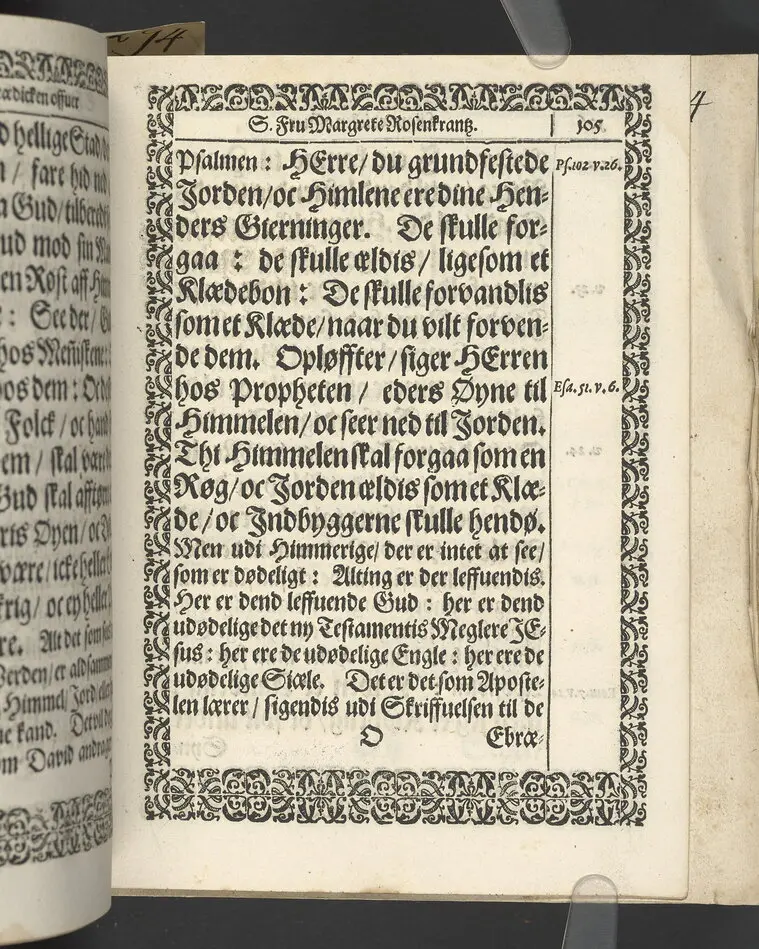 94
ædicken offuer
d hellige Stad/
/ fare hid ned
a Gud/tilbered
ud mod sin
en Røst aff
: See der/
hos Menniskene:
oos dem: Oc
Folck/oc hand
em/ skal være
Gud skal afftørre
ris Øyen/oc
være/icke heller
krig/ oc ey heller
re. Alt det som
Verden/er aldsammen
Himmel/Jord eller
kand. Det vil
om David andrager
S. Fru Margrete Rosenkrantz. 105
Psalmen: HErre/ du grundfestede Ps.102 v.26.
Jorden/oc Himlene ere dine Hen-
ders Gierninger. De skulle for-
gaa : de skulle ældis/ ligesom et
Klædebon: De skulle forvandlis
som et Klæde/naar du vilt forven-
de dem. Opløffter/siger HErren
hos Propheten/ eders Øyne til Esa.51.v.6.
Himmelen/oc seer ned til Jorden.
Thi Himmelen skal forgaa som en
Røg/oc Jorden ældis som et Klæ-
de/oc Indbyggerne skulle hendø.
Men udi Himmerige/ der er intet at see/
som er dødeligt: Alting er der leffuendis.
Her er dend leffuende Gud: her er dend
udødelige det ny Testamentis Meglere JE-
sus: her ere de udødelige Engle: her ere de
udødelige Siæle. Det er det som Aposte-
len lærer/ sigendis udi Skriffuelsen til de
O Ebræ-
4